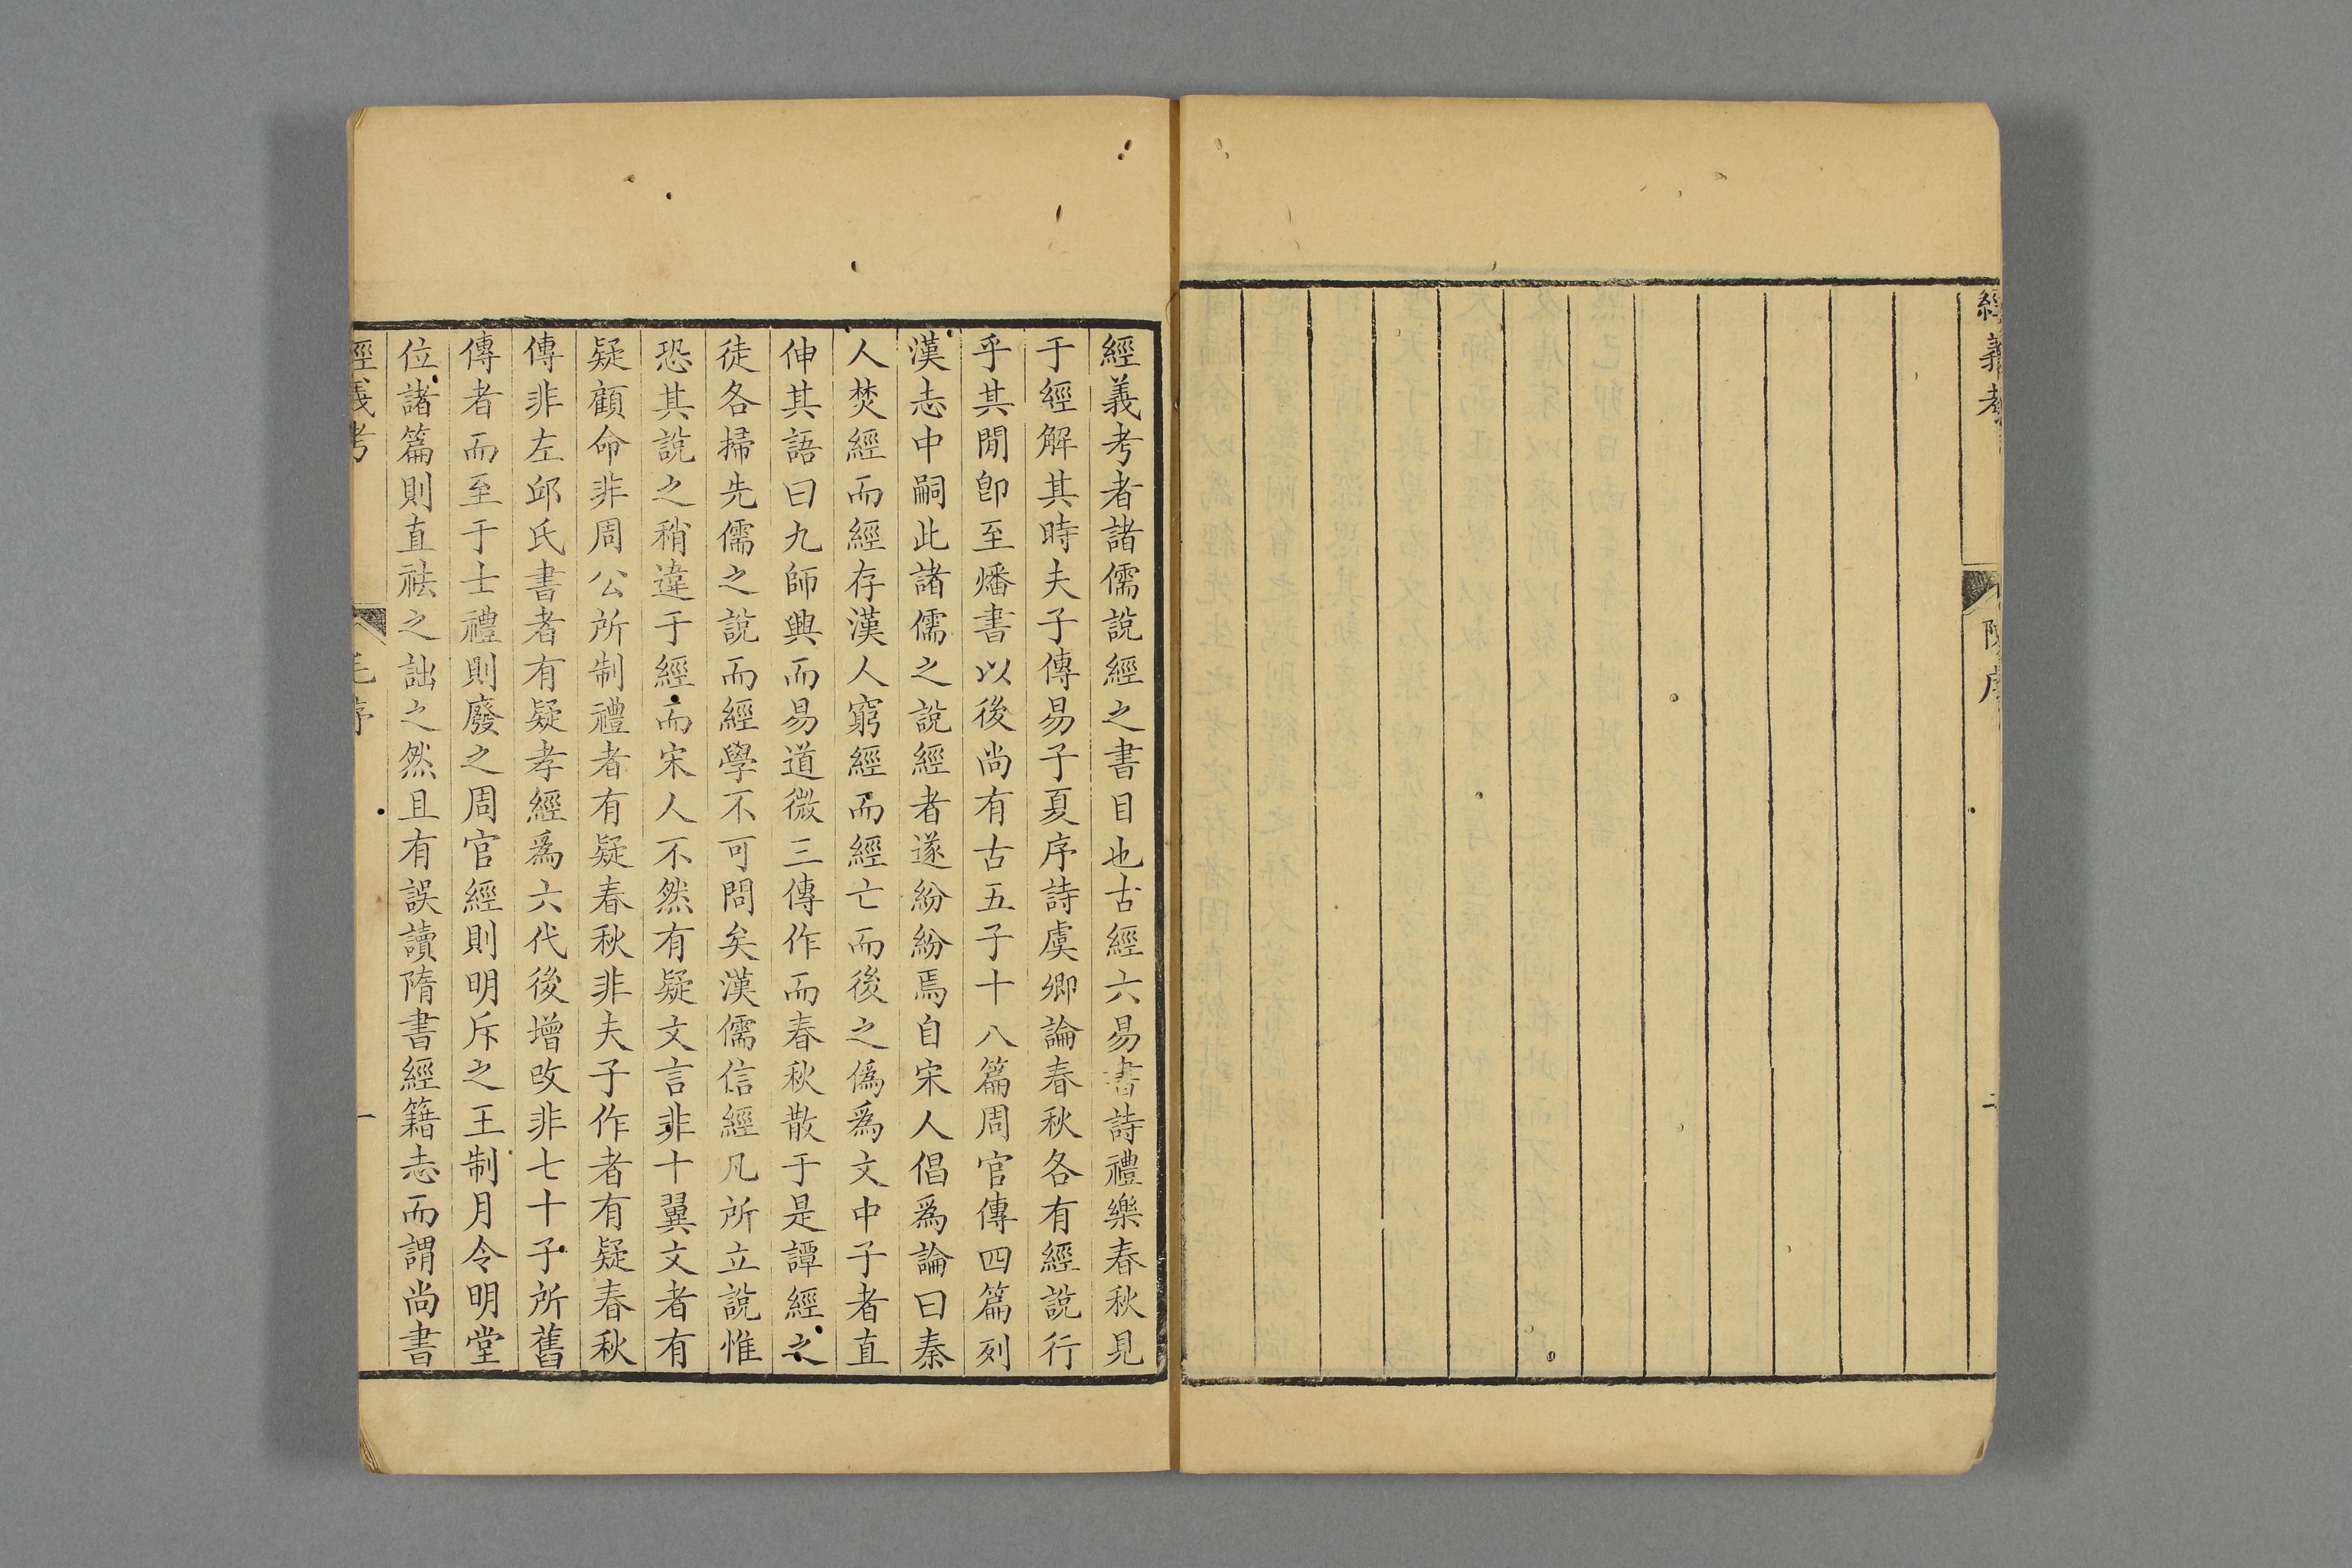 經義考
陳序
二
經義考者諸儒說經之書目也古經六易書詩禮樂春秋見
于經解其時夫子傳易子夏序詩虞卿論春秋各有經說行
乎其閒卽至燔書以後尚有古五子十八篇周官傳四篇列
漢志中嗣此諸儒之說經者遂紛紛焉自宋人倡爲論曰秦
人焚經而經存漢人窮經而經亡而後之僞爲文中子者直
伸其語曰九師興而易道微三傳作而春秋散于是譚經之
徒各掃先儒之說而經學不可問矣漢儒信經凡所立說惟
恐其說之稍違于經而宋人不然有疑文言非十翼文者有
疑顧命非周公所制禮者有疑春秋非夫子作者有疑春秋
傳非左邱氏書者有疑孝經爲六代後增改非七十子所舊
傳者而至于士禮則廢之周官經則明斥之王制月令明堂
位諸篇則直祛之詘之然且有誤讀隋書經籍志而謂尚書
經義考
毛序
一